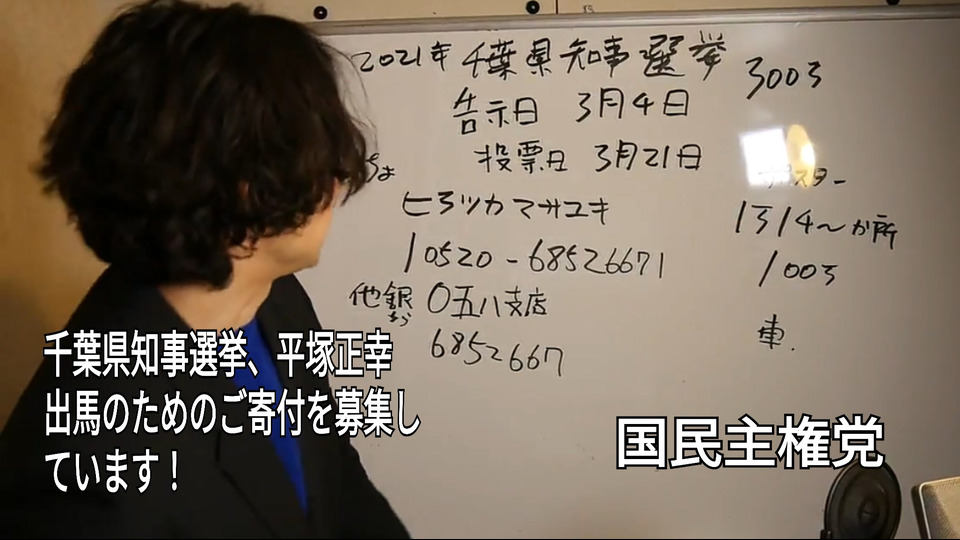 2021年 千葉県知事選挙
300万
告示日 3月4日
投票日 3月21日
ヒラツカマサユキ
10520-68526671
他銀から 〇五八支店
6852667
ポスター
1万14～か所
100万
車.
千葉県知事選挙、平塚正幸
出馬のためのご寄付を募集し
ています！
国民主権党